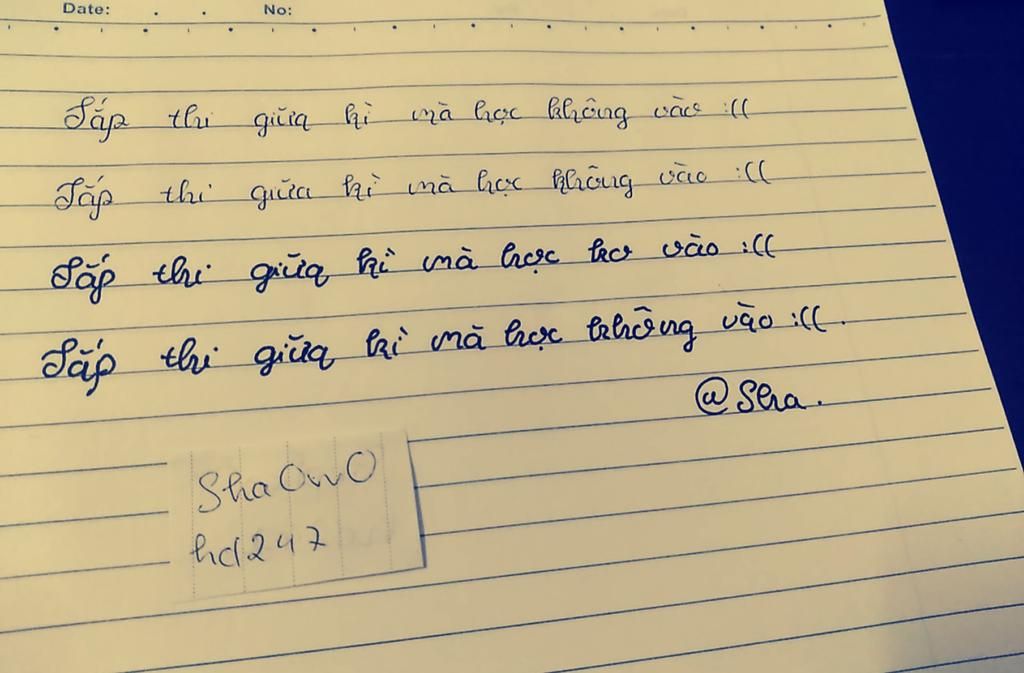 Date: . . No:
Sắp thi giữa kì mà học không vào :((
Sắp thi giữa kì mà học không vào :((
Sắp thi giữa kì mà học ko vào :((
Sắp thi giữa kì mà học không vào :((.
@Sha.
Sha OwO
hd247